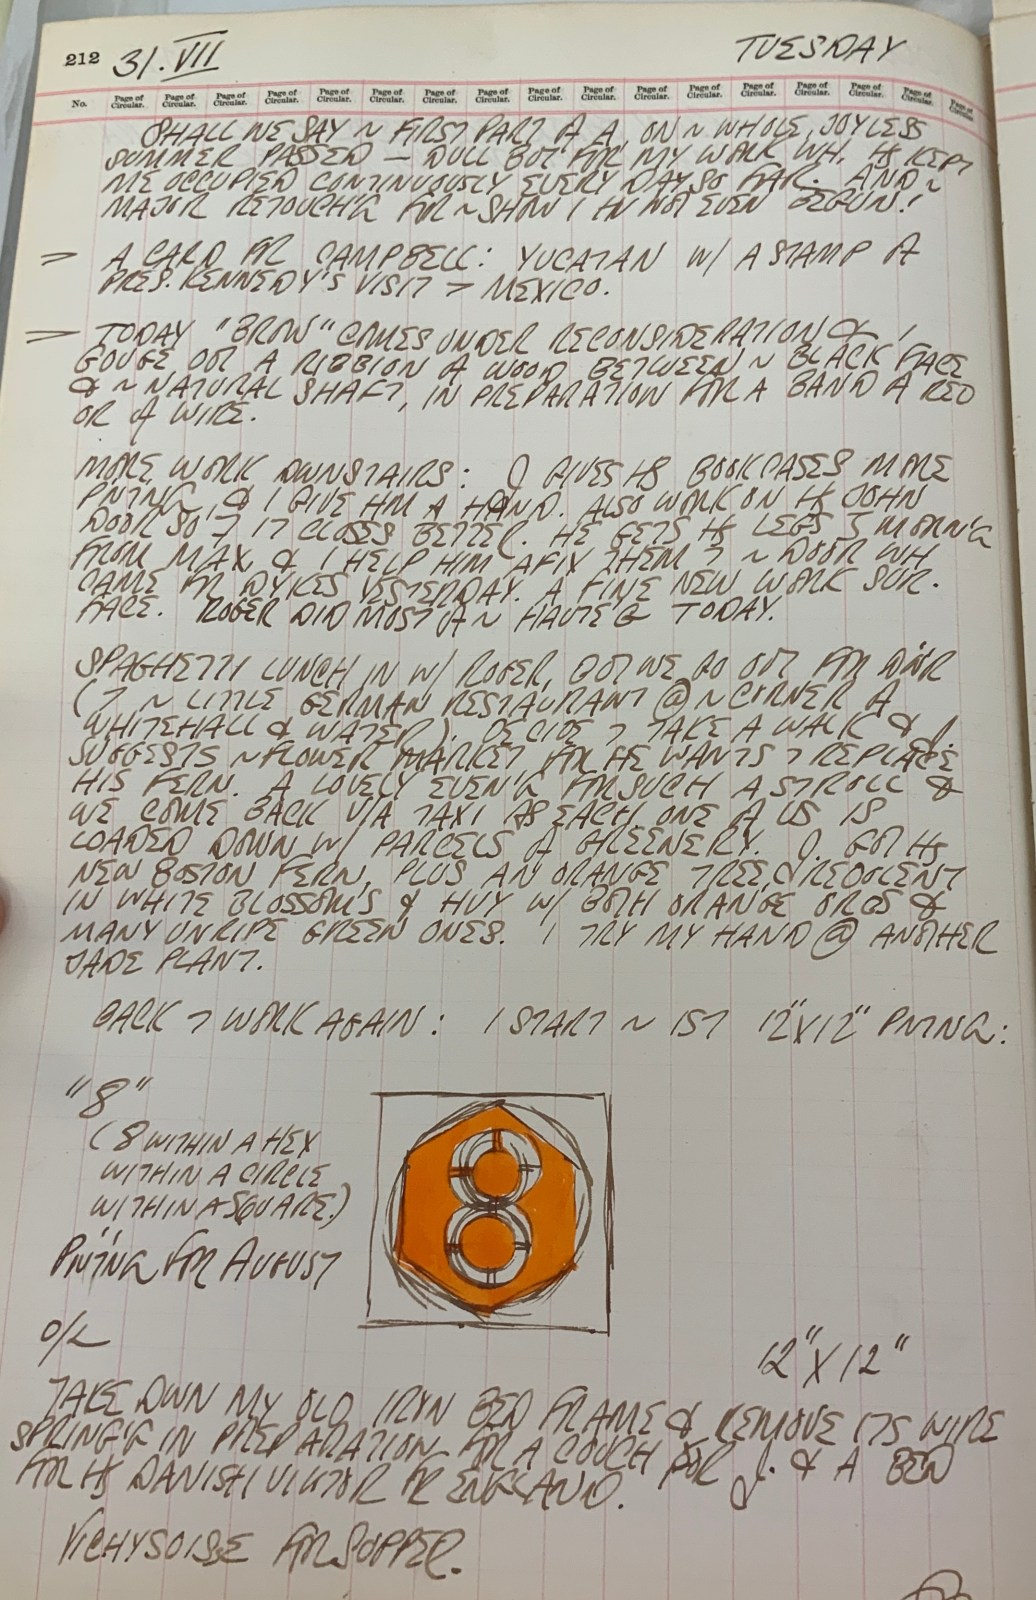 212 31.VII TUESDAY
No. Page of Circular. Page of Circular. Page of Circular. Page of Circular. Page of Circular. Page of Circular. Page of Circular. Page of Circular. Page of Circular. Page of Circular. Page of Circular. Page of Circular. Page of Circular. Page of Circular. Page of Circular. Page of Circular. Page of Circular.
SHALL WE SAY ~ FIRST PART OF A, ON ~ WHOLE, JOYLESS
SUMMER PASSED — DULL BUT FOR MY WORK WH. HS KEPT
ME OCCUPIED CONTINUOUSLY EVERY DAY SO FAR. AND ~
MAJOR RETOUCH'G FOR ~ SHOW I HV NOT EVEN BEGUN!
= A CARD FR CAMPBELL: YUCATAN W/ A STAMP OF
PRES. KENNEDY'S VISIT > MEXICO.
= TODAY "BROW" COMES UNDER RECONSIDERATION & I
GOUGE OUT A RIBBION OF WOOD BETWEEN ~ BLACK FACE
& ~ NATURAL SHAFT, IN PREPARATION FOR A BAND OF RED
OR OF WIRE.
MORE WORK DOWNSTAIRS: J GIVES HS BOOKCASES MORE
PNTNG, & I GIVE HIM A HAND. ALSO WORK ON HS JOHN
DOOR SO 7 IT CLOSES BETTER. HE GETS HS LEGS MORN'G
FROM MAX & I HELP HIM AFIX THEM 7 ~ DOOR WH
CAME FR DYKES YESTERDAY. A FINE NEW WORK SUR.
FACE. ROGER DID MOST OF ~ HAUTE G TODAY.
SPAGHETTI LUNCH IN W/ ROGER, BUT WE GO OUT FOR DINR
(7 ~ LITTLE GERMAN RESTAURANT @ ~ CORNER OF
WHITEHALL & WATER). DECIDE 7 TAKE A WALK & J.
SUGGESTS ~ FLOWER MARKET FOR HE WANTS 7 REPLACE
HIS FERN. A LOVELY EVEN'G FOR SUCH A STROLL &
WE COME BACK VIA TAXI AS EACH ONE OF US IS
LOADED DOWN W/ PARCELS OF GREENERY. J. GOT HS
NEW BOSTON FERN, PLUS AN ORANGE TREE, REDOLENT
IN WHITE BLOSSOMS & HVY W/ BOTH ORANGE ORBS &
MANY UNRIPE GREEN ONES. I TRY MY HAND @ ANOTHER
JADE PLANT.
BACK 7 WORK AGAIN: I START ~ 1ST 12"X12" PNTNG:
"8"
(8 WITHIN A HEX
WITHIN A CIRCLE
WITHIN A SQUARE.)
PNTNG FOR AUGUST
8
O/L
12" X 12"
TAKE DOWN MY OLD IRON BED FRAME & REMOVE ITS WIRE
SPRING'G IN PREPARATION FOR A COUCH FOR J. & A BED
FOR HS DANISH VISITOR FR ENGLAND.
VICHYSOISSE FOR SUPPER.